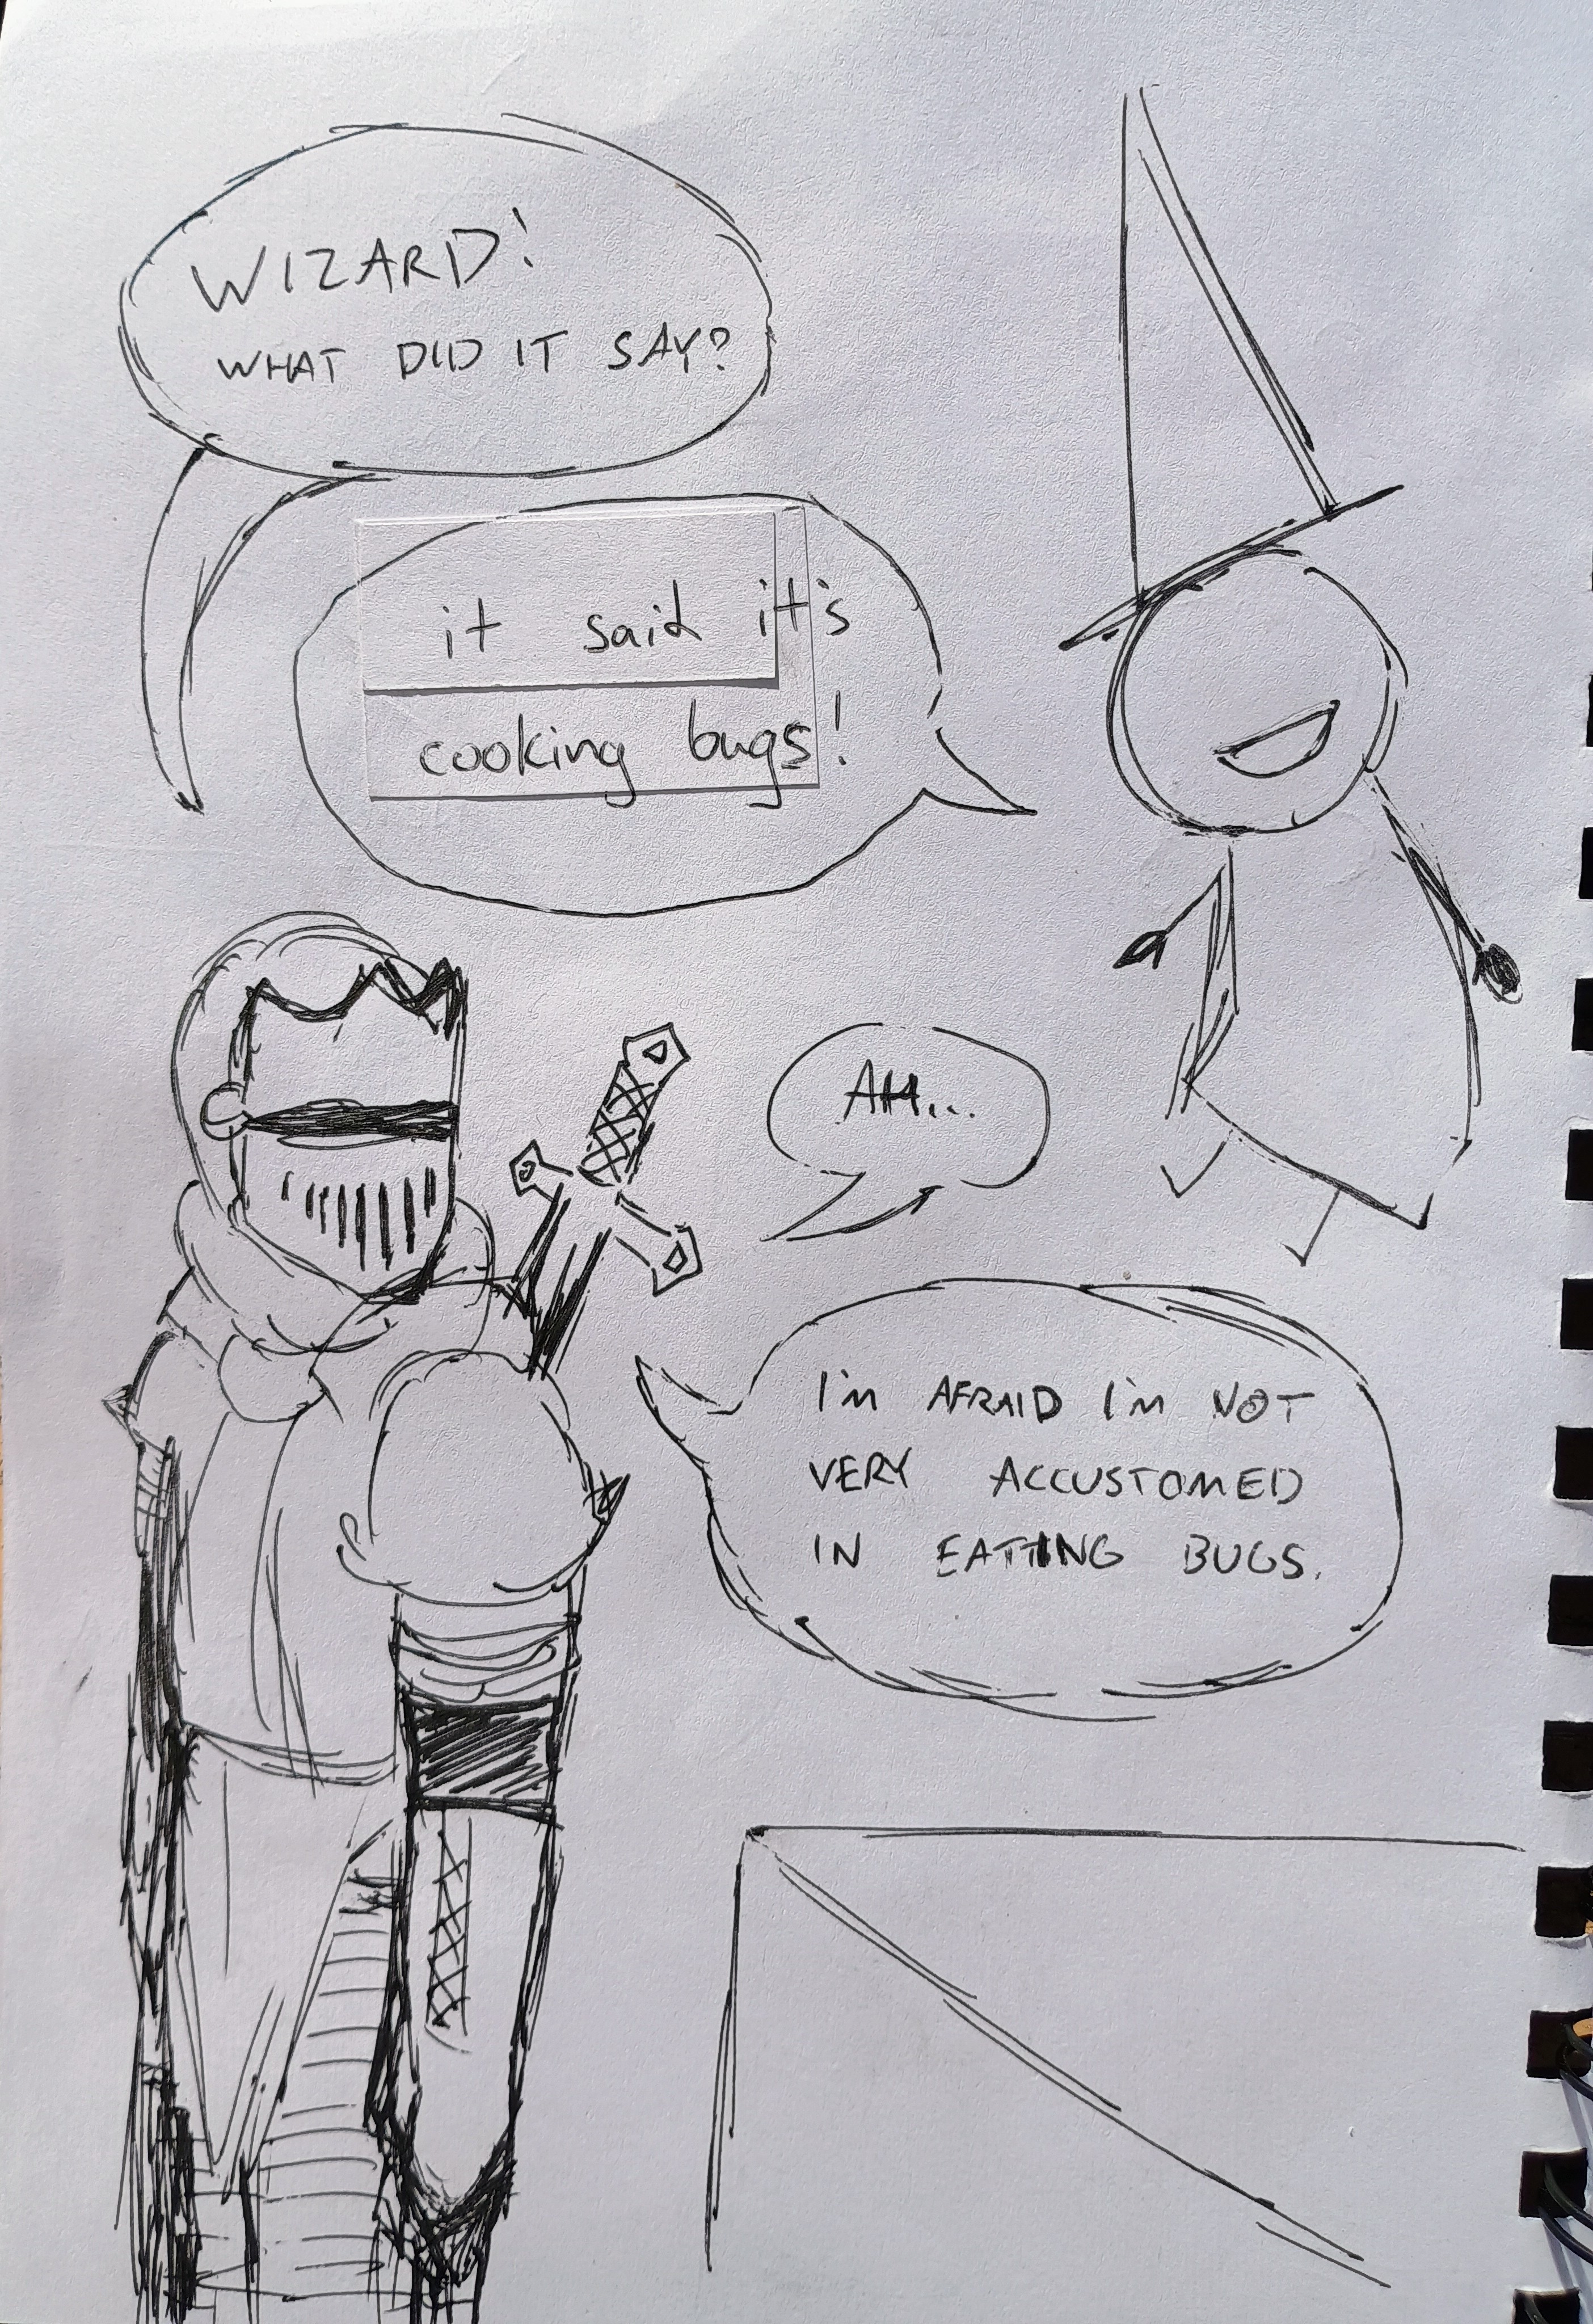 WIZARD!
WHAT DID IT SAY?
it said it's
cooking bugs!
AH...
I'm AFRAID I'm NOT
VERY ACCUSTOMED
IN EATING BUGS.